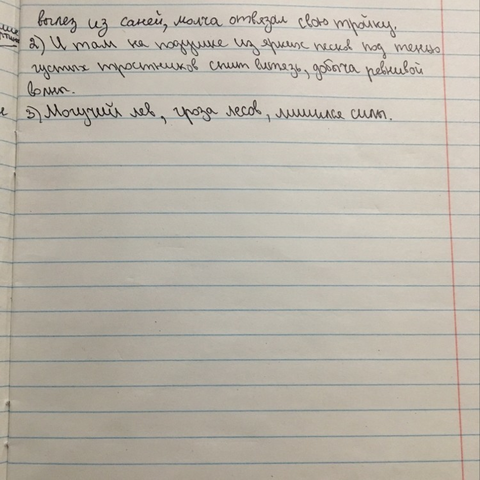 вылез из саней, молча отвязал свою тройку.
2) И там на подушке из ярких песков под тенью
густых тростников спит витязь, добыча ревнивой
волны.
3) Могучий лев, гроза лесов, лишился силы.